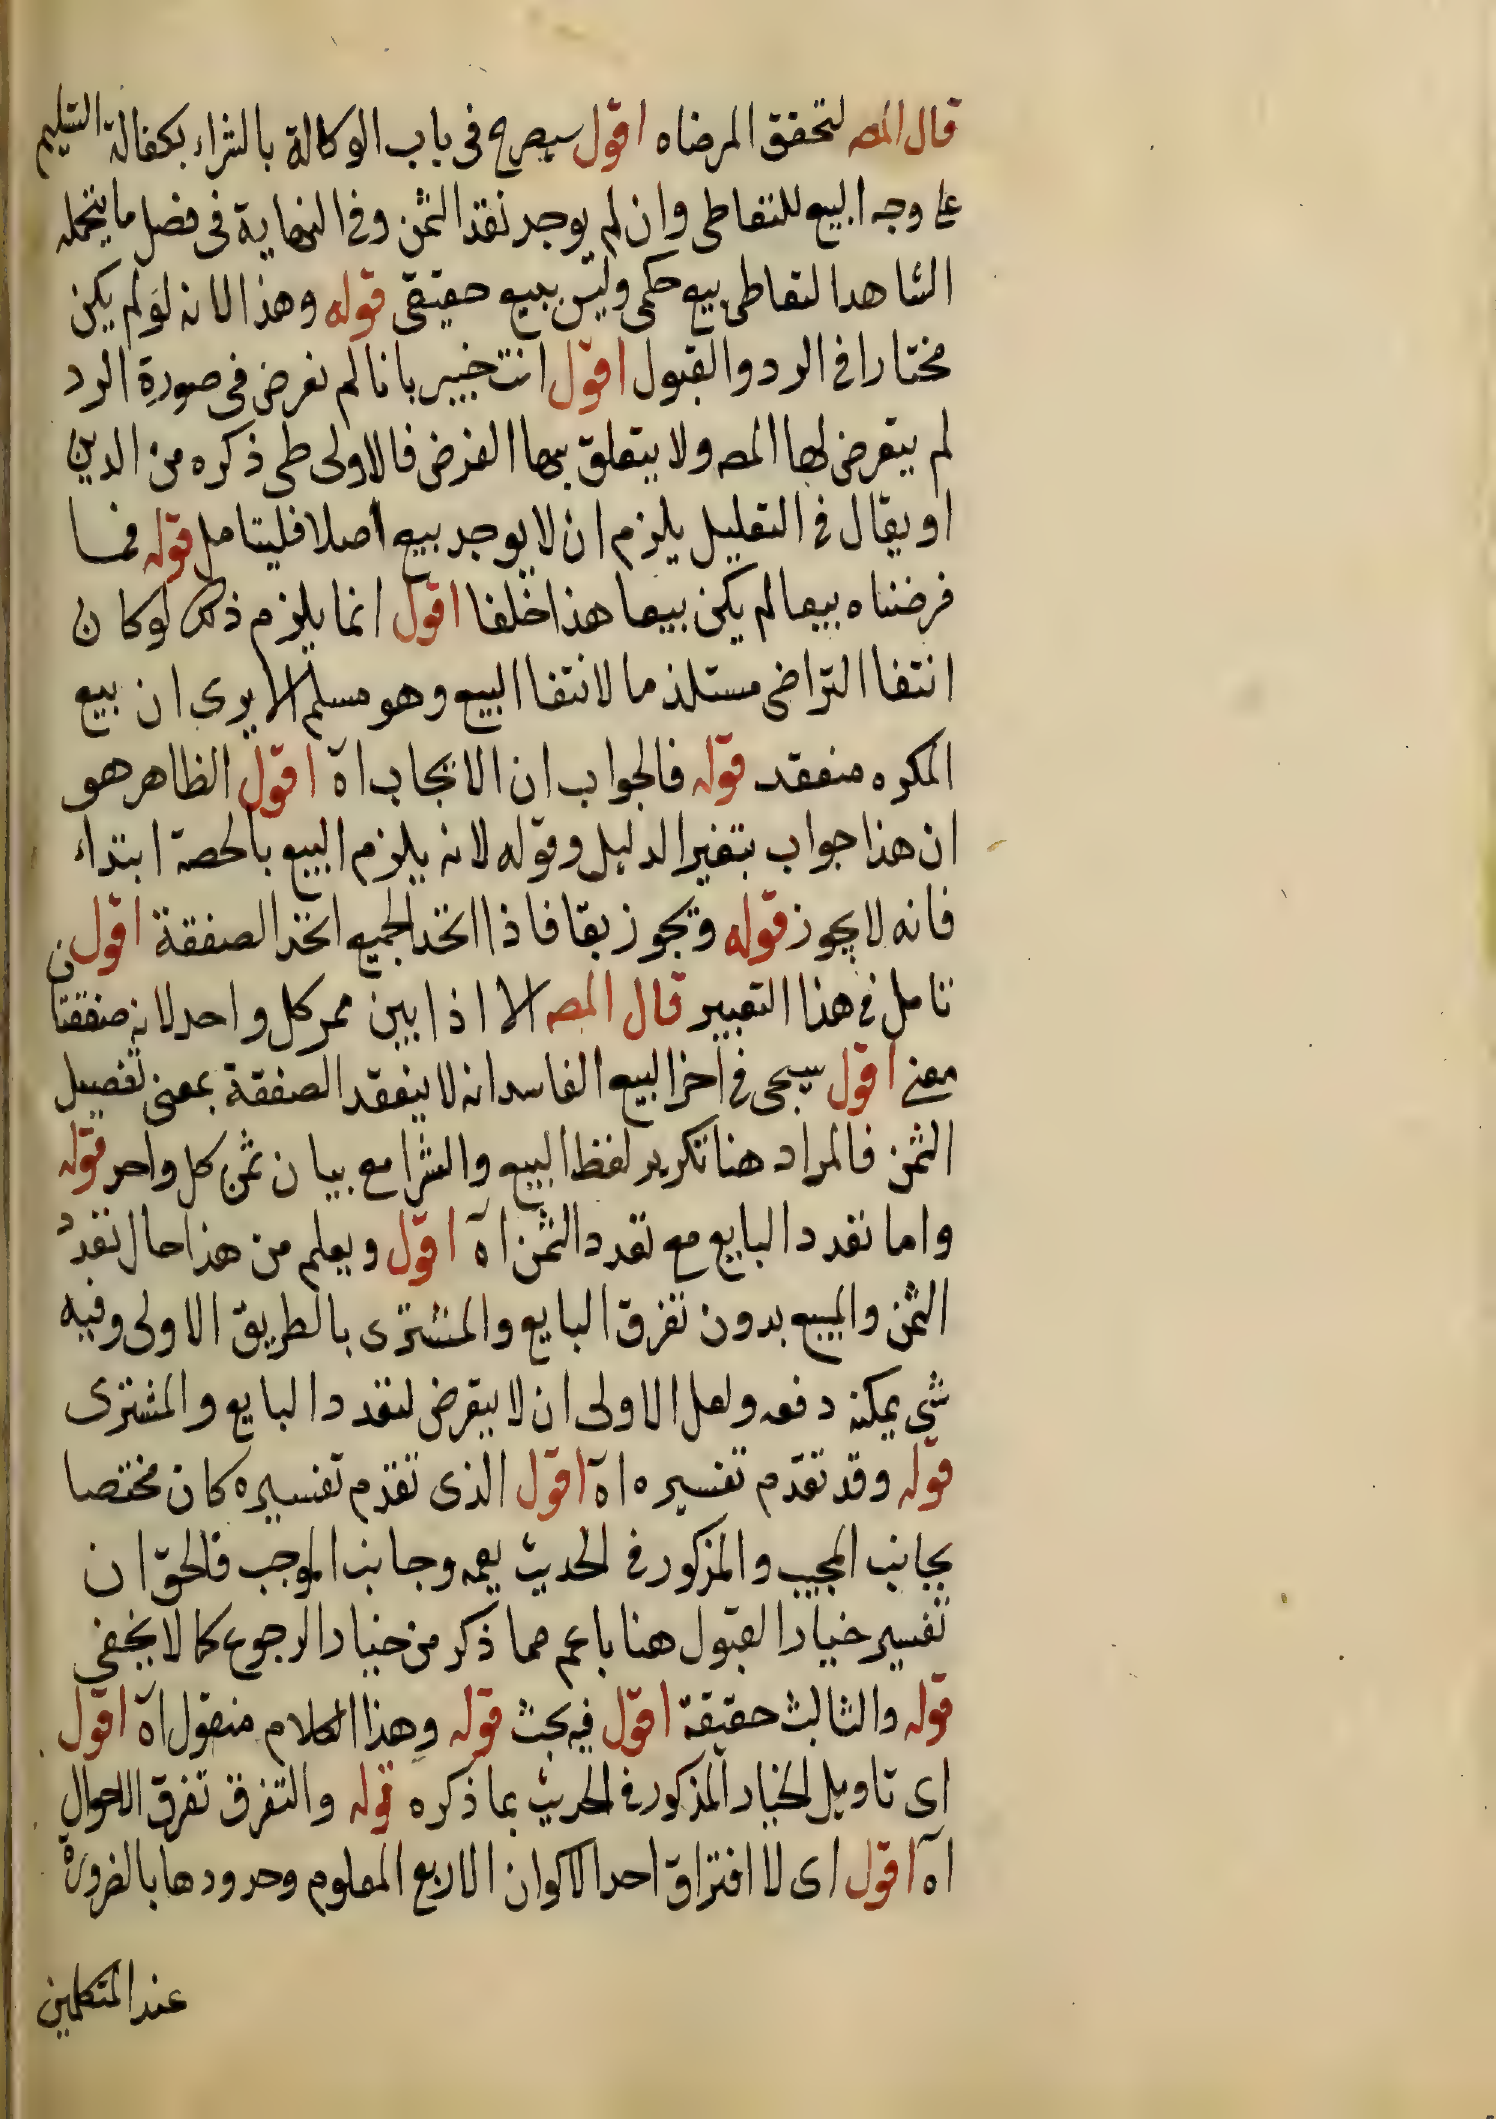 قال المص لتحقق المرضاه اقول سيصرح فى باب الوكالة بالشراء بكفالة التسليم
على وجه البيع للتعاطى وان لم يوجد نقد الثمن وفى النهاية فى فصل ما يتحمله
الشاهد التعاطى بيع حكمى وليس ببيع حقيقى قوله وهذا لانه لو لم يكن
مختارا فى الرد والقبول اقول انت خبير بانا لم نفرض فى صورة الرد
لم يتعرض لها المص ولا يتعلق بها الغرض فالاولى طى ذكره من الدين
او يقال فى التعليل يلزم ان لا يوجد بيع اصلا فليتامل قوله فما
فرضناه بيعا لم يكن بيعا هذا خلفا اقول انما يلزم ذلك لو كان
انتفا التراضى مستلذما لانتفا البيع وهو مسلم الا يرى ان بيع
المكره منعقد قوله فالجواب ان الايجاب اه اقول الظاهر هو
ان هذا جواب بتغير الدليل وقوله لانه يلزم البيع بالحصة ابتداء
فانه لا يجوز قوله ويجوز بقا فاذا اتحد الجميع اتحد الصفقة اقول
تامل فى هذا التعبير قال المص الا اذا بين ثمن كل واحد لانه صفقتان
معنى اقول سيجى فى اخر البيع الفاسد انه لا ينعقد الصفقة بمعنى تفصيل
الثمن فالمراد هنا تكرير لفظ البيع والشرا مع بيان ثمن كل واحد قوله
واما تعدد البايع مع تعدد الثمن اه اقول ويعلم من هذا حال تعدد
الثمن والمبيع بدون تفرق البايع والمشترى بالطريق الاولى وفيه
شى يمكن دفعه ولعل الاولى ان لا يتعرض لتعدد البايع والمشترى
قوله وقد تقدم تفسيره اه اقول الذى تقدم تفسيره كان مختصا
بجانب المجيب والمذكور فى الحديث يعمه وجانب الموجب فالحق ان
تفسير خيار القبول هنا باعم مما ذكر من خيار الرجوع كما لا يخفى
قوله والثالث حقيقة اقول فيه بحث قوله وهذا الكلام منقول اه اقول
اى تاويل الخيار المذكور فى الحديث بما ذكره قوله والتفرق تفرق الاحوال
اه اقول اى لا افتراق احد الاكوان الاربع المعلوم وحدودها بالضرورة
عند المتكلمين